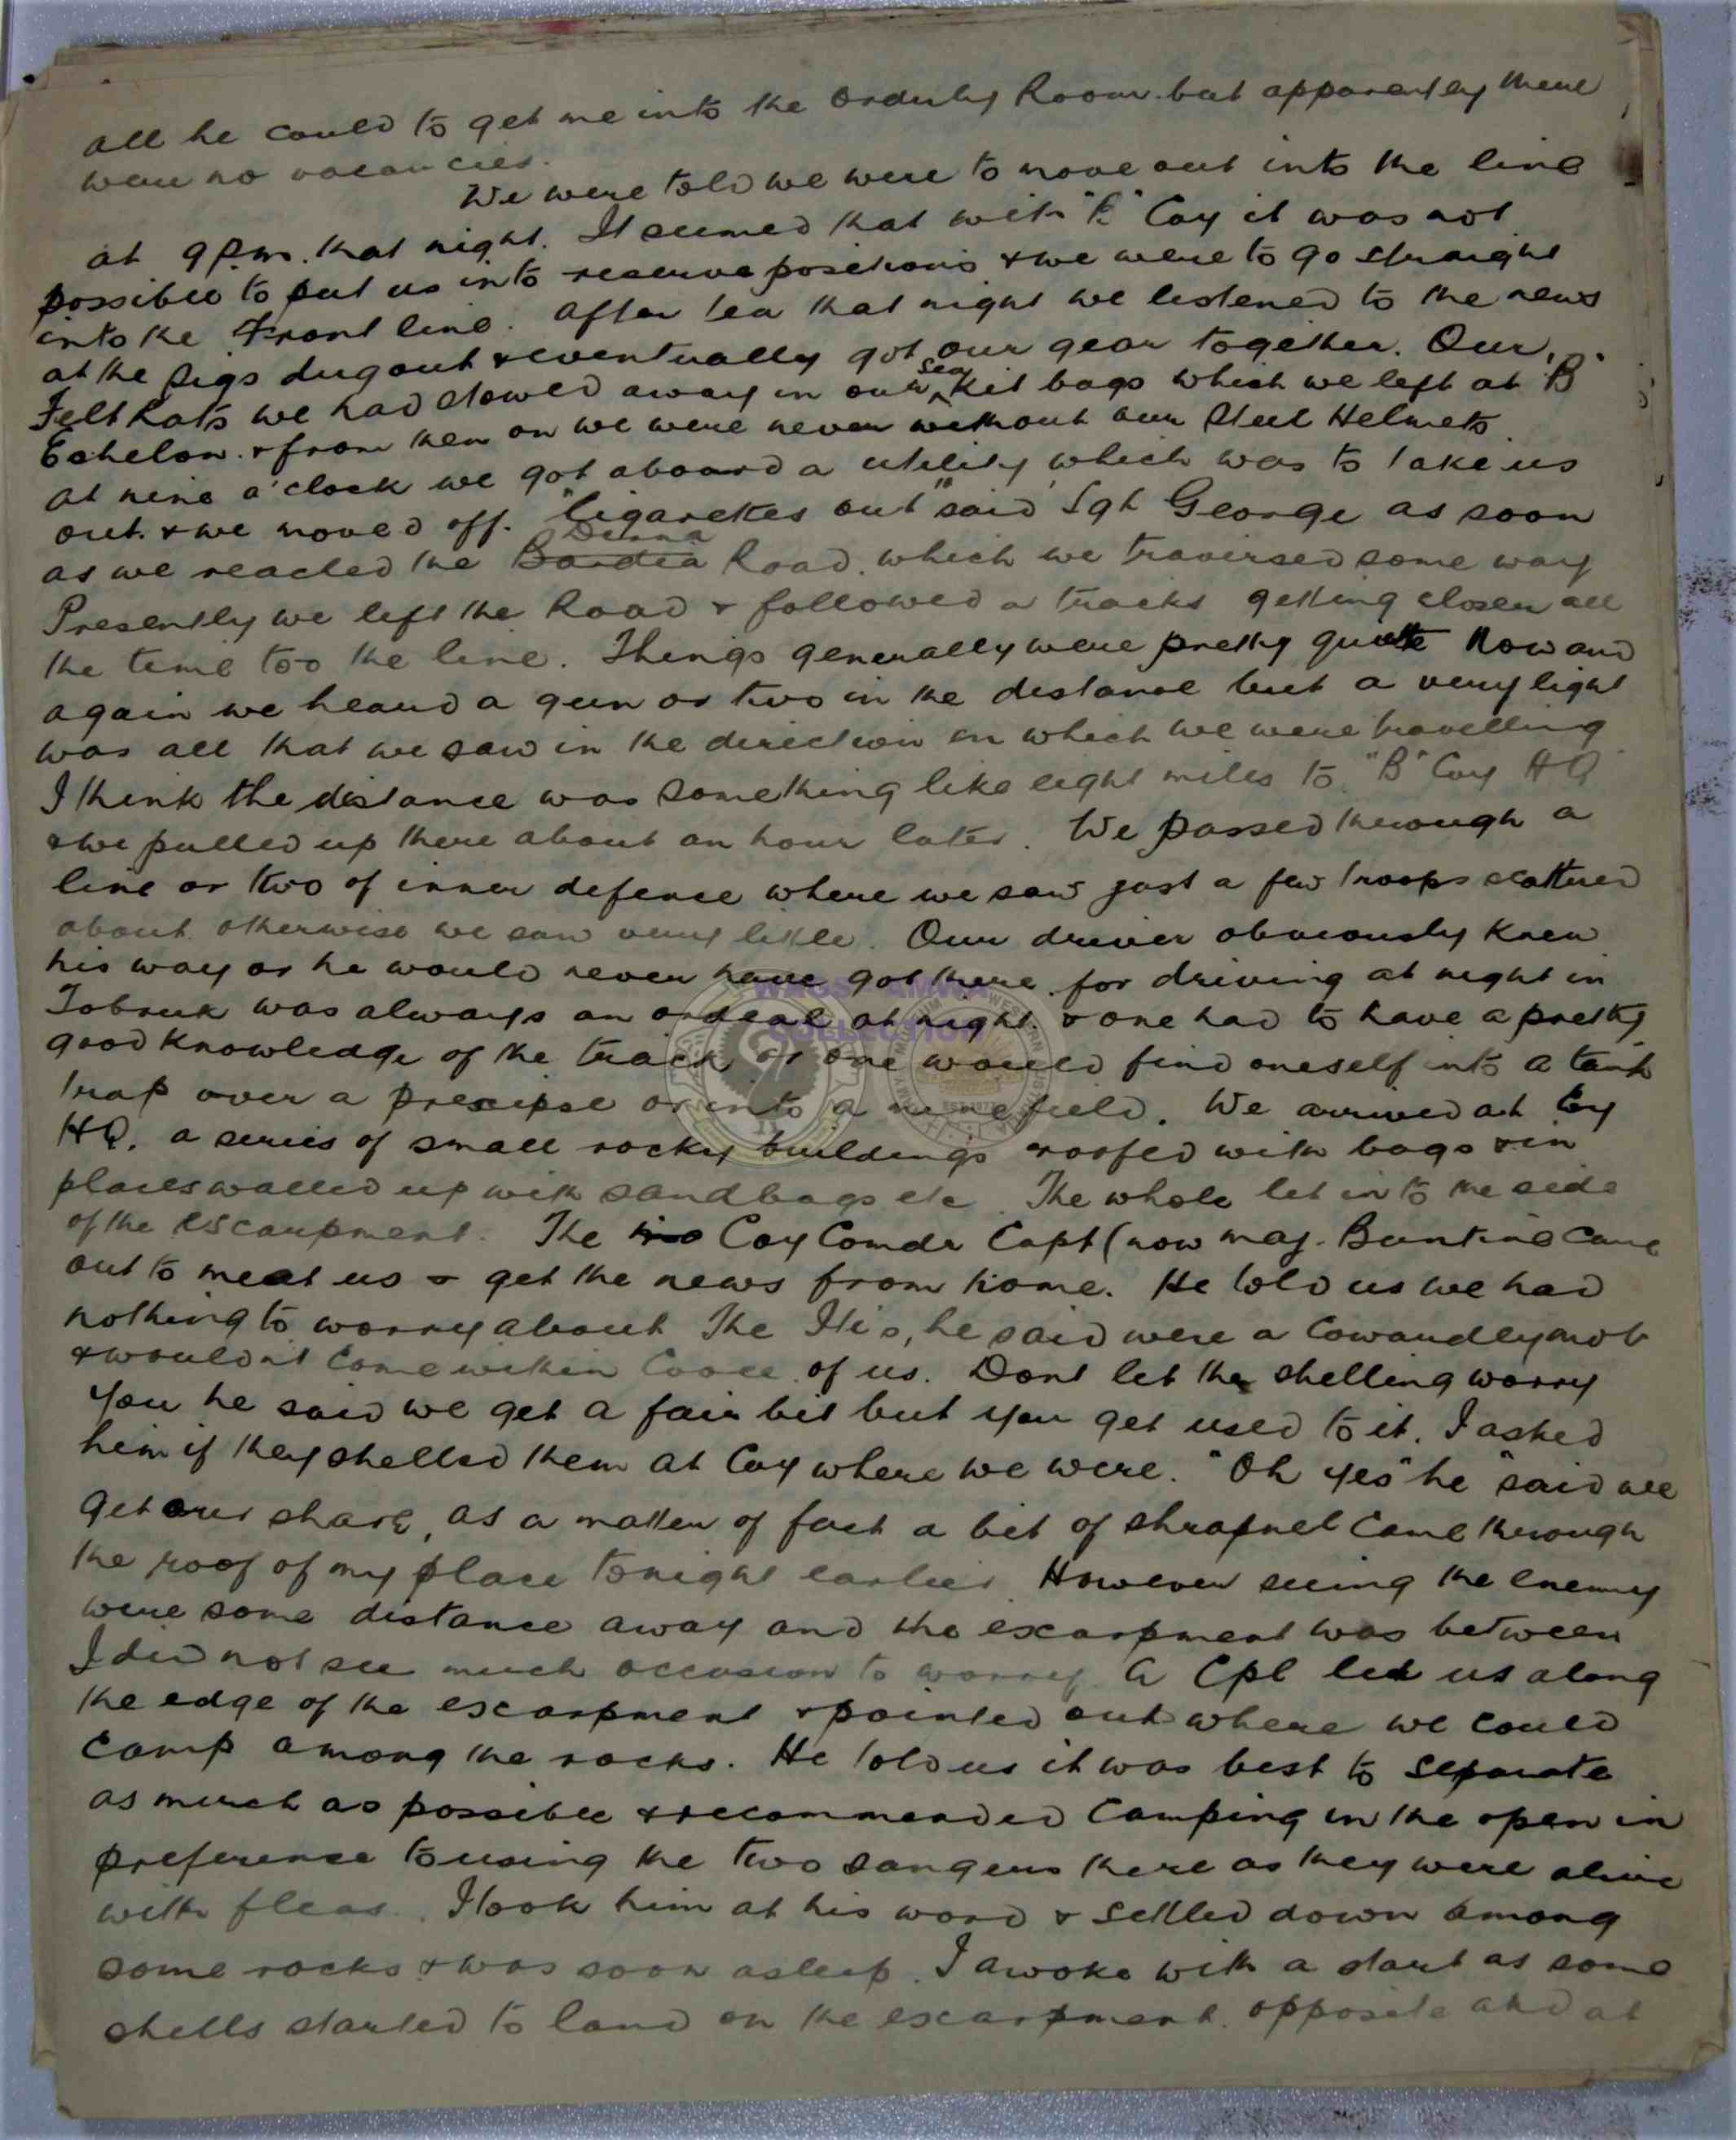 all he could to get me into the Orderly Room but apparently there
were no vacancies.
We were told we were to move out into the line
at 9 P.m. that night. It seemed that with "B" Coy it was not
possible to put us into reserve positions & we were to go straight
into the Front line. After tea that night we listened to the news
at the Sigs dugout & eventually got our gear together. Our
Felt hats we had stowed away in our sea kit bags which we left at B
Echelon. & from then on we were never without our Steel Helmets.
At nine o'clock we got aboard a utility which was to take us
out. & we moved off. "Cigarettes out" said Sgt George as soon
as we reached the Bardia Derna Road. which we traversed some way
Presently we left the Road & followed a tracks getting closer all
the time too the line. Things generally were pretty quite Now and
again we heard a gun or two in the distance but a very light
was all that we saw in the direction in which we were travelling
I think the distance was something like eight miles to "B" Coy HQ
& we pulled up there about an hour later. We passed through a
line or two of inner defence where we saw just a few troops scattered
about otherwise we saw very little. Our driver obviously knew
his way or he would never have got there. for driving at night in
Tobruk was always an ordeal at night. & one had to have a pretty
good knowledge of the track or one would find oneself into a tank
trap over a precipse or into a minefield. We arrived at Coy
HQ. a series of small rocky buildings roofed with bags & in
places walled up with sandbags etc. The whole let into the side
of the escarpment. The Coy Comdr Capt (now Maj. Bunting came
out to meat us & get the news from home. He told us we had
nothing to worry about The Itis, he said were a cowardly mob
& wouldnt come within Cooee of us. Dont let the shelling worry
you he said we get a fair bit but you get used to it. I asked
him if they shelled them at Coy where we were. "Oh yes" he "said we
get our share, as a matter of fact a bit of shrapnel came through
the roof of my place tonight earlier. However seeing the enemy
were some distance away and the escarpment was between
I did not see much occasion to worry. A Cpl led us along
the edge of the escarpment & pointed out where we could
camp among the rocks. He told us it was best to separate
as much as possible & recommended camping in the open in
preference to using the two sangers there as they were alive
with fleas. I took him at his word & settled down among
some rocks & was soon asleep. I awoke with a start as some
shells started to land on the escarpment. opposite and at
COLLECTION